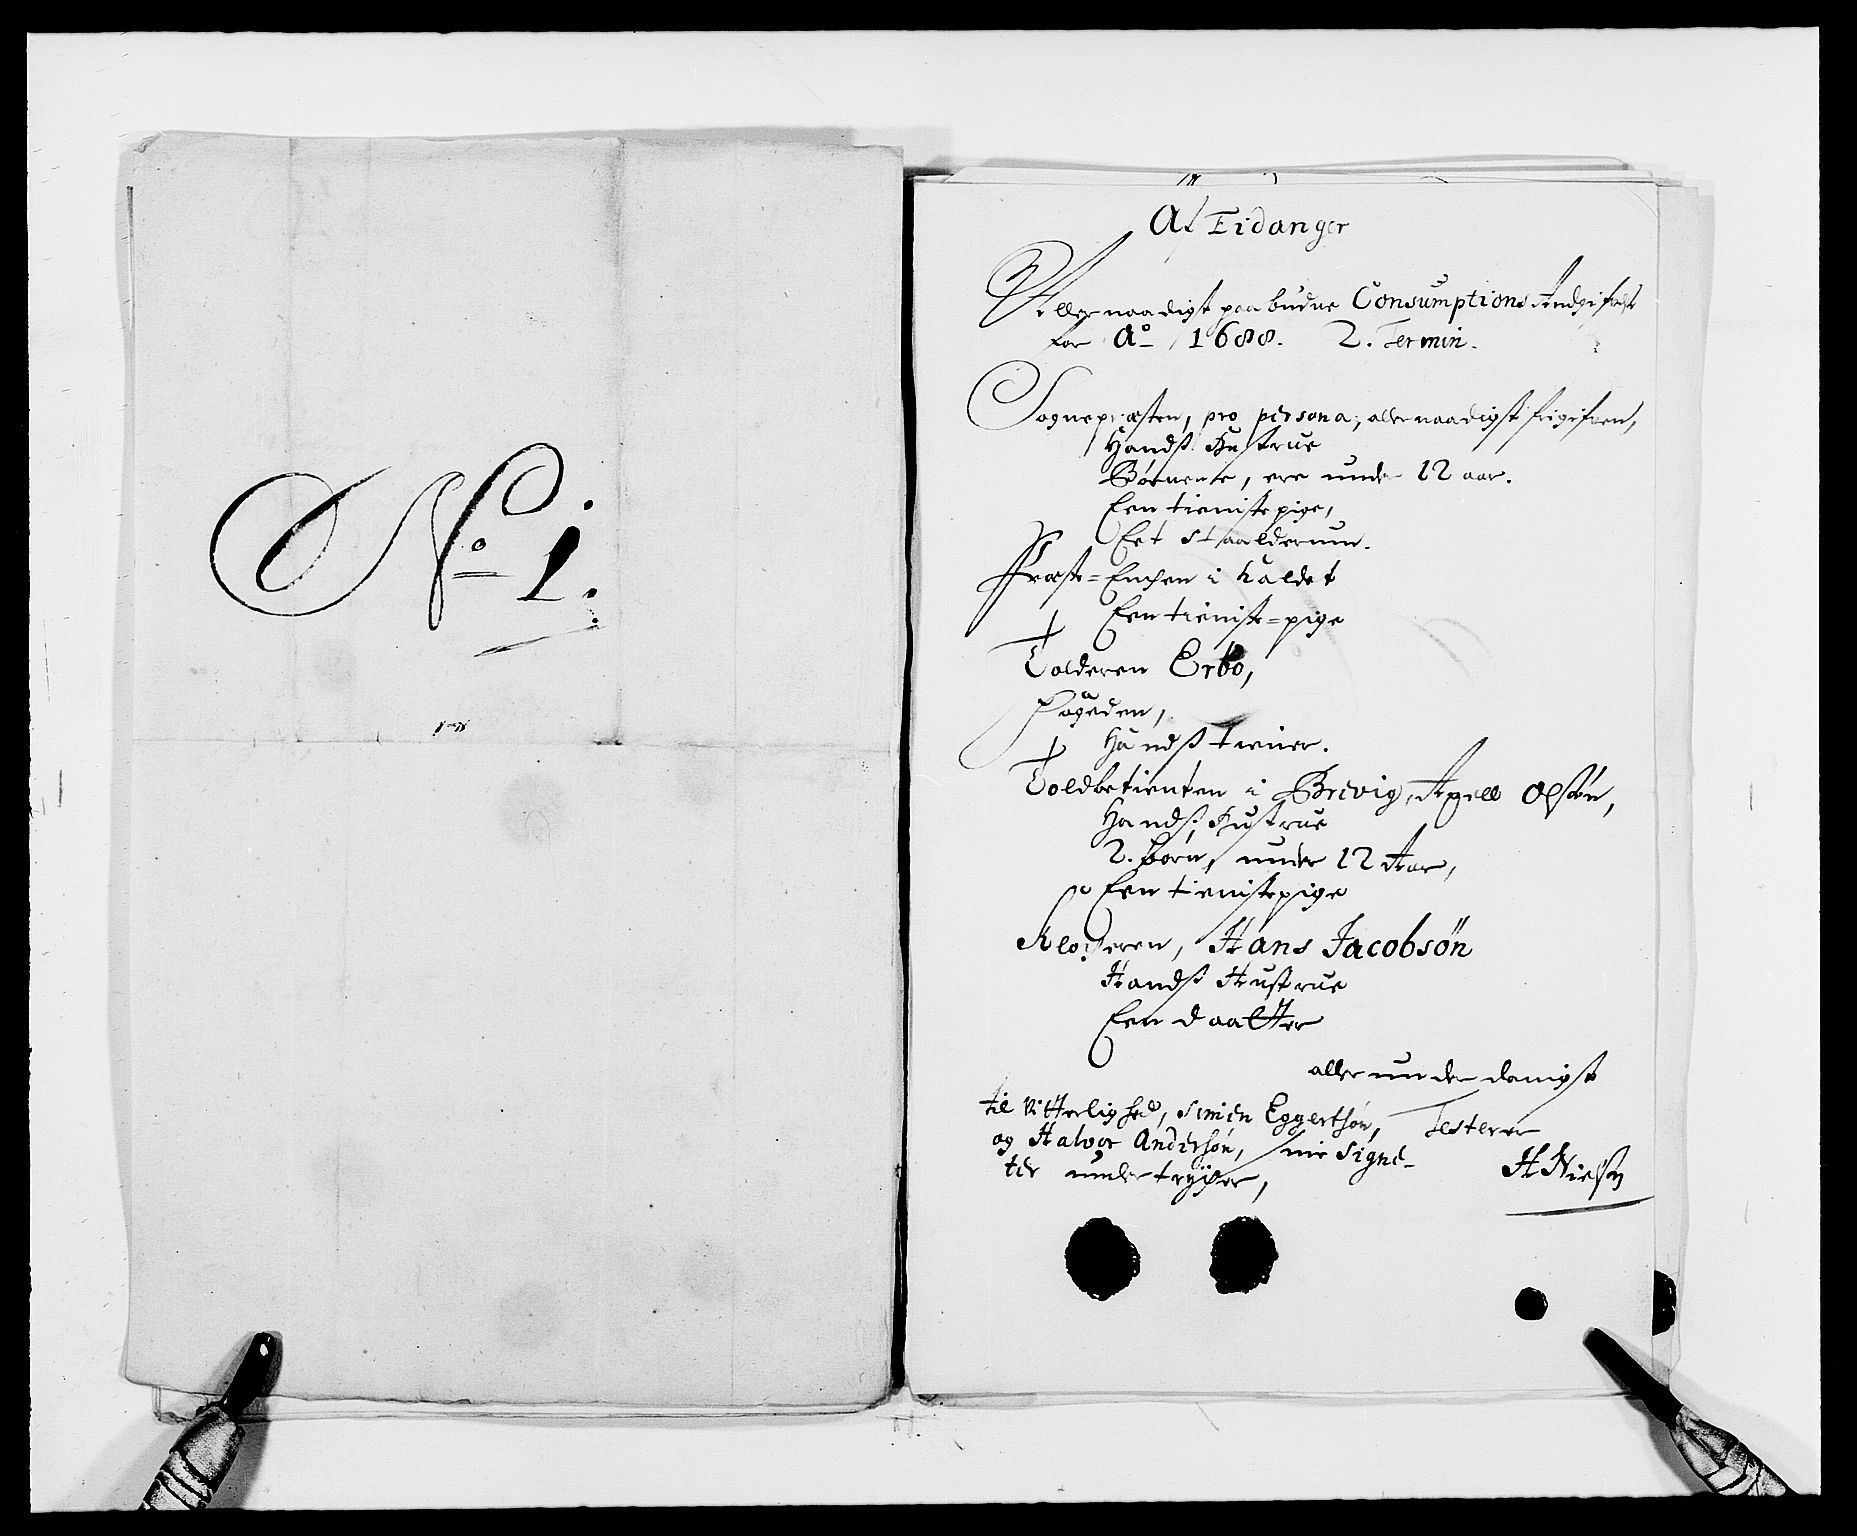 No 1.
Af Eidanger
Allernaadigst paabudne Consumptions Andgifvelse
for Ao 1688. 2. Termin.
Sognepræsten, pro persona, allernaadigst frigifven,
Handß Hustrue
Børnene, ere under 12 aar.
Een tienistepige,
Eet Staalderum.
Præste-Enchen i Kaldet
Een tieniste-pige
Tolderen Erbo,
Fogeden,
Handß tiener.
Toldbetienten i Brevig, Axell Olsøn,
Handß Hustrue
2. børn, under 12 Aar,
Een tienistepige
Klocheren, Hans Jacobsøn
Handß Hustrue
Een daatter
allerunderdanigst
til Vitterlighed, Simen Eggertsøn, Testerer
og Halvor Andersøn, Signe-
ter undertrycher,
HNielsøn